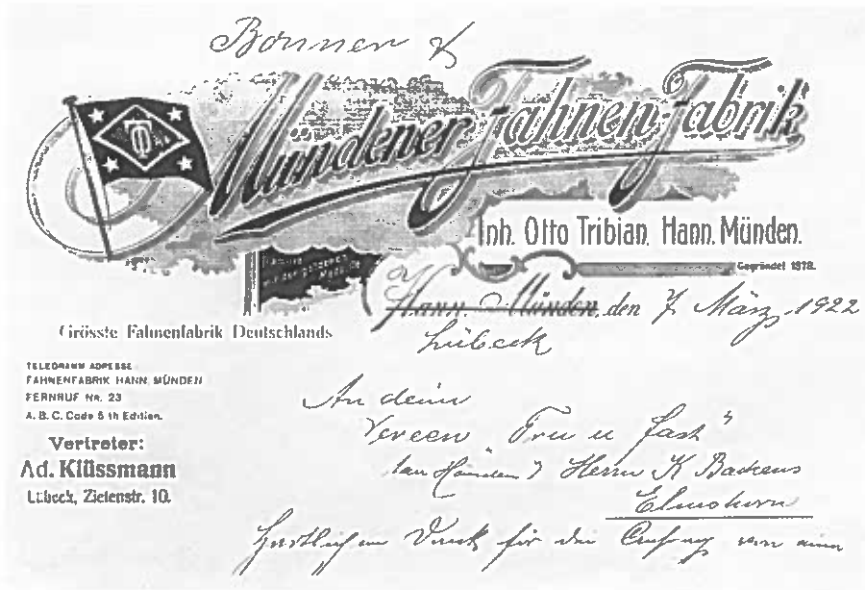 Bonner &
Mündener Fahnen-Fabrik
Inh. Otto Tribian, Hann. Münden.
Gegründet 1878.
Hann. Münden, den 7 März 1922
Lübeck
Grösste Fahnenfabrik Deutschlands
TELEGRAMM ADRESSE
FAHNENFABRIK HANN. MÜNDEN
FERNRUF NR. 23
A. B. C. Code 5 th Edition.
Vertreter:
Ad. Klüssmann
Lübeck, Zietenstr. 10.
An deim
Vereen „Tru u fast"
tau Hännen Herrn K Backens
Elmshorn
Hartlichen Dank för die